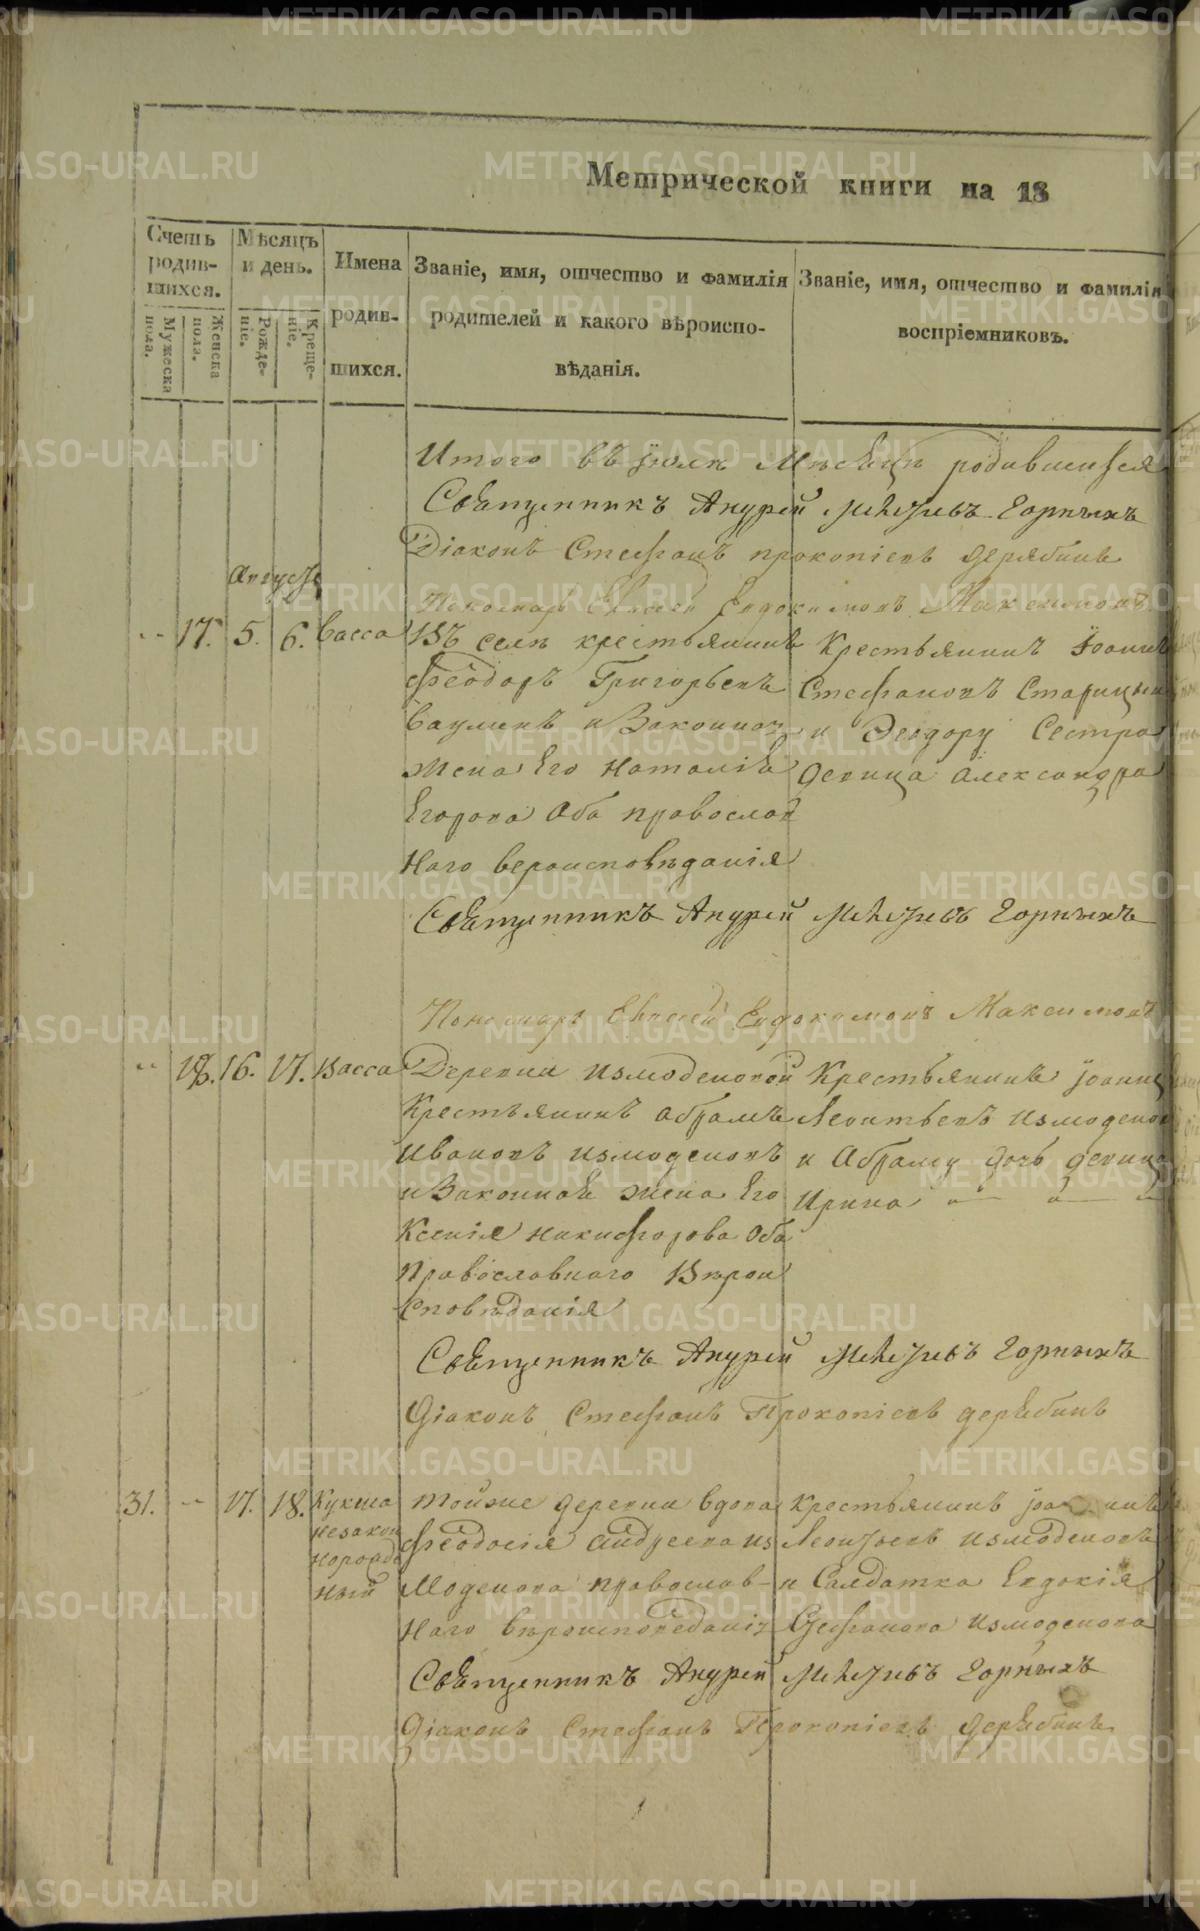 Метрической книги на 18
Счетъ родив-шихся.
Мужеска пола.
Женска пола.
Мѣсяцъ и день.
Рожде-ніе.
Креще-ніе.
Имена родив-шихся.
Званіе, имя, отчество и фамилія
родителей и какого вѣроиспо-
вѣданія.
Званіе, имя, отчество и фамилія
воспріемниковъ.
Итого въ іюлѣ Мѣсяцѣ родившихся
Священникъ Андрей Горныхъ
Діаконъ Стефанъ прокопіевъ дерябинъ
Августъ
Пономарь Евсевій Евдокимовъ Максимовъ
17. 5. 6. Васса
Въ селѣ крестьянинъ
Феодоръ Григорьевъ
Ваулинъ и Законная
жена Его Наталія
Егорова Оба православ
наго вероисповѣданія
Крестьянинъ Іоаннъ
Стефановъ Старицынъ
и Феодору Сестра
девица Александра
Священникъ Андрей Горныхъ
Пономарь Евсевій Евдокимовъ Максимовъ
18. 16. 17. Васса
Деревни измоденовой
Крестьянинъ абрамъ
Ивановъ измоденовъ
и Законная жена Его
Ксенія никифорова Оба
православнаго Вѣрои
сповѣданія
Крестьянинъ іоаннъ
Леонтьевъ измоденов
и Абраму дочь девица
Ирина
Священникъ Андрей Горныхъ
Діаконъ Стефанъ Прокопіевъ дерябинъ
31. 17. 18. Кукша
незакон
норожде
ный
тойже деревни вдова
Феодосія андреева из
моденова православ-
наго вѣроисповеданія
крестьянинъ іоаннъ
Леонтьевъ измоденовъ
и Салдатка Евдокія
Стефанова измоденова
Священникъ Андрей Горныхъ
Діаконъ Стефанъ Прокопіевъ дерябинъ
METRIKI.GASO-URAL.RU